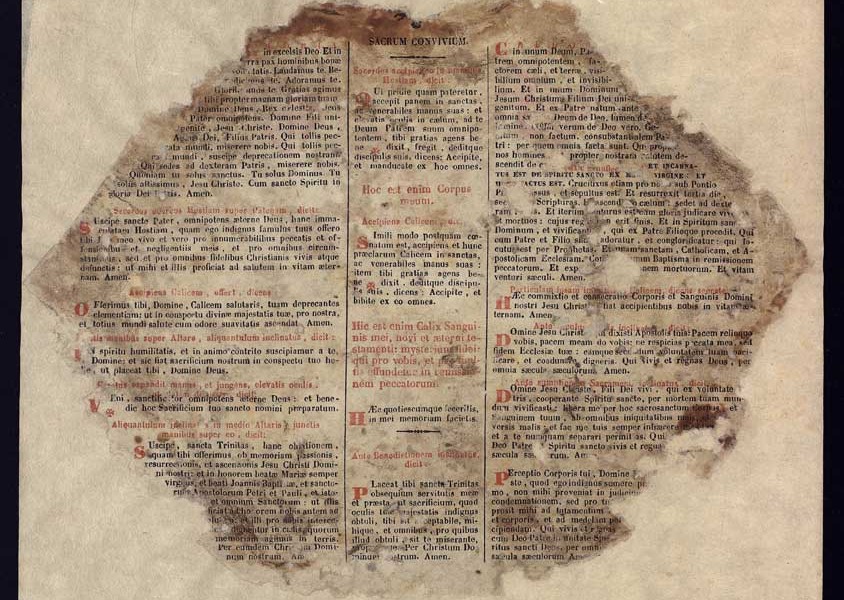 in excelsis Deo Et in
rra pax hominibus bonæ
tatis. Laudamus te. Be-
te. Adoramus te.
te Gratias agimus
tibi propter magnam gloriam tuam
Domine Deus, Rex
Pater omnipotens. Domine Fili uni-
genite, Jesu Christe. Domine Deus,
Dei, Filius Patris. Qui tollis pec-
mundi, miserere nobis. Qui tollis
mundi, suscipe deprecationem nostram
Qui sedes ad dexteram Patris, miserere nobis.
Quoniam tu solus sanctus. Tu solus Dominus. Tu
solus altissimus, Jesu Christe. Cum sancto Spiritu in
gloria Dei Patris. Amen.
Hostiam super Patenam, dicit:
Suscipe sancte Pater, omnipotens æterne Deus, hanc imma-
culatam Hostiam, quam ego indignus famulus tuus offero
tibi Deo meo vivo et vero pro innumerabilibus peccatis et of-
et negligentiis meis, et pro omnibus circum-
sed et pro omnibus fidelibus Christianis vivis atque
defunctis: ut mihi et illis proficiat ad salutem in vitam æter-
nam. Amen.
Accipiens Calicem, offert, dicens
Offerimus tibi, Domine, Calicem salutaris, tuam deprecantes
clementiam: ut in conspectu divinæ majestatis tuæ, pro nostra,
et totius mundi salute cum odore suavitatis ascendat. Amen.
manibus super Altare, aliquantulum inclinatus, dicit:
In spiritu humilitatis, et in animo contrito suscipiamur a te,
Domine: et sic fiat sacrificium nostrum in conspectu tuo ho-
ut placeat tibi, Domine Deus.
expandit manus, et jungens, elevatis oculis,
Veni, sanctificator omnipotens æterne Deus: et bene-
dic hoc Sacrificium tuo sancto nomini præparatum.
Aliquantulum in medio Altaris junctis
manibus super eo, dicit:
Suscipe, sancta Trinitas, hanc oblationem,
quam tibi offerimus ob memoriam passionis,
resurrectionis, et ascensionis Jesu Christi Domi-
ni nostri: et in honorem beatæ Mariæ semper
virg et beati Joannis Baptistæ, et sancto-
Apostolorum Petri et Pauli, et isto-
et omnium Sanctorum: ut illis
ad honorem nobis autem ad
illi pro nobis interce-
in cælis, quorum
memoriam agimus in terris.
Per eumdem Christum Domi-
num nostrum. Am
SACRUM CONVIVIUM.
Sacerdos
Hostiam, dicit:
Qui pridie quam pateretur,
accepit panem in sanctas,
ac venerabiles manus suas: et
elevatis oculis in cælum, ad te
Deum Patrem suum omnipo-
tentem, tibi gratias agens be-
ne ✠ dixit, fregit, deditque
discipulis suis, dicens: Accipite,
et manducate ex hoc omnes.
Hoc est enim Corpus
meum.
Accipiens Calicem, dicit:
Simili modo postquam cœ-
natum est, accipiens et hunc
præclarum Calicem in sanctas,
ac venerabiles manus suas:
item tibi gratias agens be-
ne ✠ dixit, deditque discipu-
lis suis, dicens: Accipite, et
bibite ex eo omnes.
Hic est enim Calix Sangui-
nis mei, novi et æterni te-
stamenti: mysterium fidei:
qui pro vobis, et
tis effundetur in remissio-
nem peccatorum.
Hæc quotiescumque feceritis,
in mei memoriam facietis.
Ante Benedictionem inclinatus,
dicit:
Placeat tibi sancta Trinitas
obsequium servitutis meæ
et præsta, ut sacrificium, quod
oculis tuæ majestatis indignus
obtuli, tibi sit acceptabile, mi-
hique, et omnibus, pro quibus
illud obtuli, sit te miserante,
Per Christum Do-
minum nostrum. Amen.
C in unum Deum, Pa-
trem omnipotentem,
ctorem cœli, et terræ, visi-
bilium omnium, et invisibi-
lium. Et in unum Dominum
Jesum Christum Filium Dei uni-
genitum. Et ex Patre natum ante
omnia sæ Deum de Deo, lumen de
verum de Deo vero. Ge-
non factum, consubstantialem Pa-
tri: per quem omnia facta sunt. Qui pro-
nos homines propter nostram salutem de-
scendit de
ET INCARNA-
TUS EST DE SPIRITU SANCTO EX MARIA VIRGINE: ET
HOMO FACTUS EST. Crucifixus etiam pro nobis sub Pontio
Pi passus, et sepultus est. Et resurrexit tertia die,
Scripturas. Et ascendit in cælum: sedet ad dexte-
ram Et iterum venturus est cum gloria judicare vivos
et mortuos: cujus reg erit finis. Et in Spiritum sanct
Dominum, et vivific qui ex Patre Filioque procedit. Qui
cum Patre et Filio adoratur, et conglorificatur: qui lo-
cutus est per Prophetas. Et unam sanctam, Catholicam, et A-
postolicam Ecclesiam. Con Baptisma in remissionem
peccatorum. Et exp nem mortuorum. Et vitam
venturi sæculi. Amen.
Hæc commixtio et consecratio Corporis et Sanguinis Domini
nostri Jesu Chris fiat accipientibus nobis in vitam æ-
ternam. Amen.
Domine Jesu Christe dixisti Apostolis tuis: Pacem relinquo
vobis, pacem meam do vobis: ne respicias peccata mea, sed
fidem Ecclesiæ tuæ: eamque secundum voluntatem tuam paci-
care, et coadunare digneris. Qui vivis et regnas Deus, per
omnia sæcula sæculorum. Amen.
Domine Jesu Christe, Fili Dei vivi, qui ex voluntate
Patris, cooperante Spiritu sancto, per mortem tuam mun-
dum vivificasti: libera me per hoc sacrosanctum
Sanguinem tuum, ab omnibus iniquitatibus
versis malis et fac me tuis semper inhærere
et a te numquam separari permittas. Qui
Deo Patre Spiritu sancto vivis et regnas
sæcula Amen.
Perceptio Corporis tui, Domine
ste, quod ego indignus sumere præ-
mo, non mihi proveniat in judicium
condemnationem, sed pro tua
prosit mihi ad tutamentum
et corporis, et ad medelam per-
cipiendam. Qui vivis et regnas
cum Deo Patre in unitate Spi-
ritus sancti Deus, per omnia
sæcula sæculorum. Am